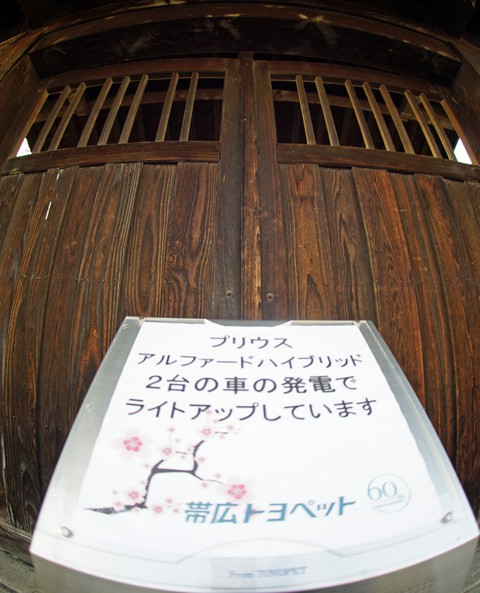 プリウス
アルファードハイブリッド
2台の車の発電で
ライトアップしています
帯広トヨペット
60th
From TOYOPET